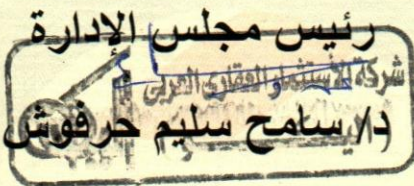 رئيس مجلس الإدارة
شركة الأستثمار العقارى العربى
د/ سامح سليم حرفوش